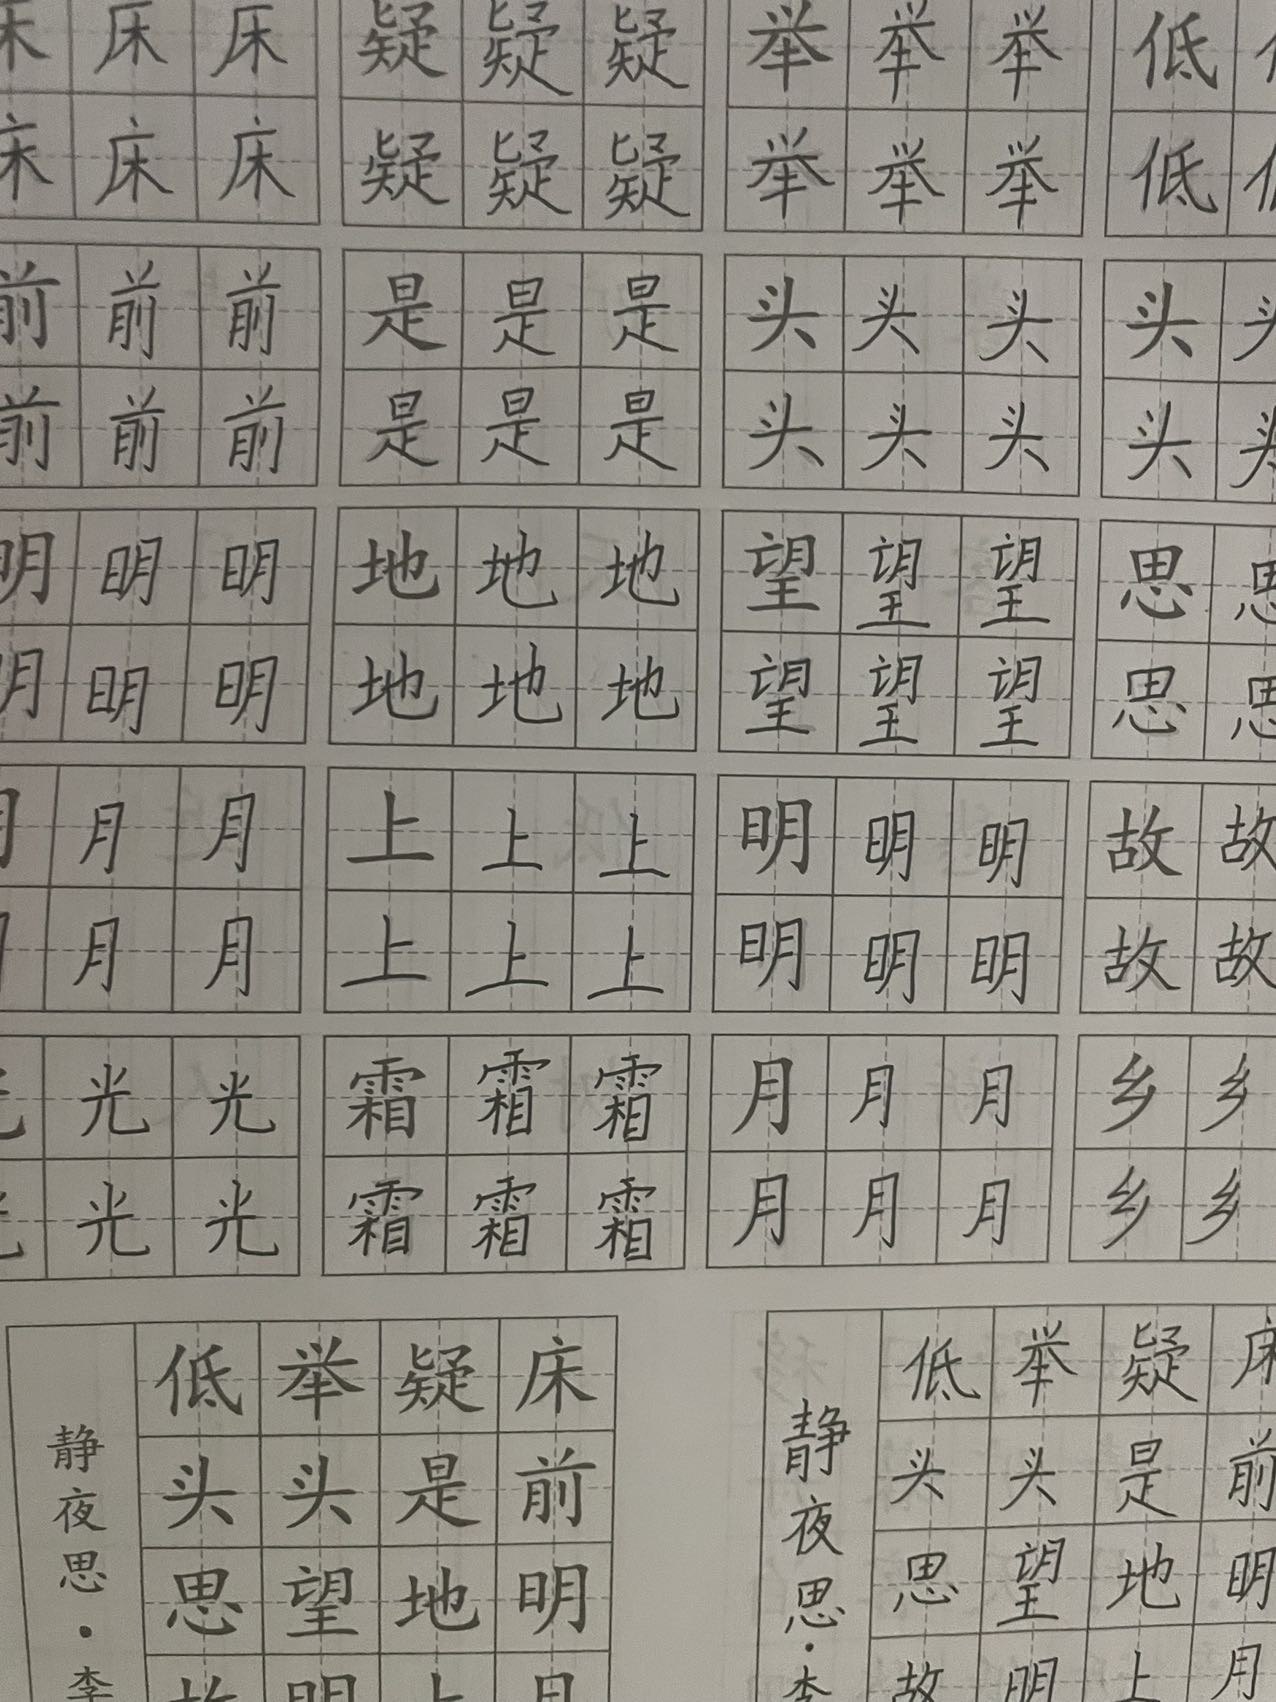 床 床 床 疑 疑 疑 举 举 举 低
床 床 床 疑 疑 疑 举 举 举 低
前 前 前 是 是 是 头 头 头 头 头
前 前 前 是 是 是 头 头 头 头 头
明 明 明 地 地 地 望 望 望 思 思
明 明 明 地 地 地 望 望 望 思 思
月 月 月 上 上 上 明 明 明 故 故
月 月 月 上 上 上 明 明 明 故 故
光 光 光 霜 霜 霜 月 月 月 乡 乡
光 光 光 霜 霜 霜 月 月 月 乡 乡
床前明月
疑是地上
举头望明
低头思故
静夜思·李
床前明月
疑是地上
举头望明
低头思故
静夜思·李